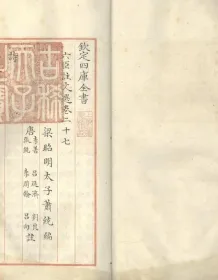 欽定四庫全書
六臣註文選卷二十七
梁昭明太子蕭統編
唐李善 呂延濟 劉良
張銑 李周翰 呂向 註
古稀
天子